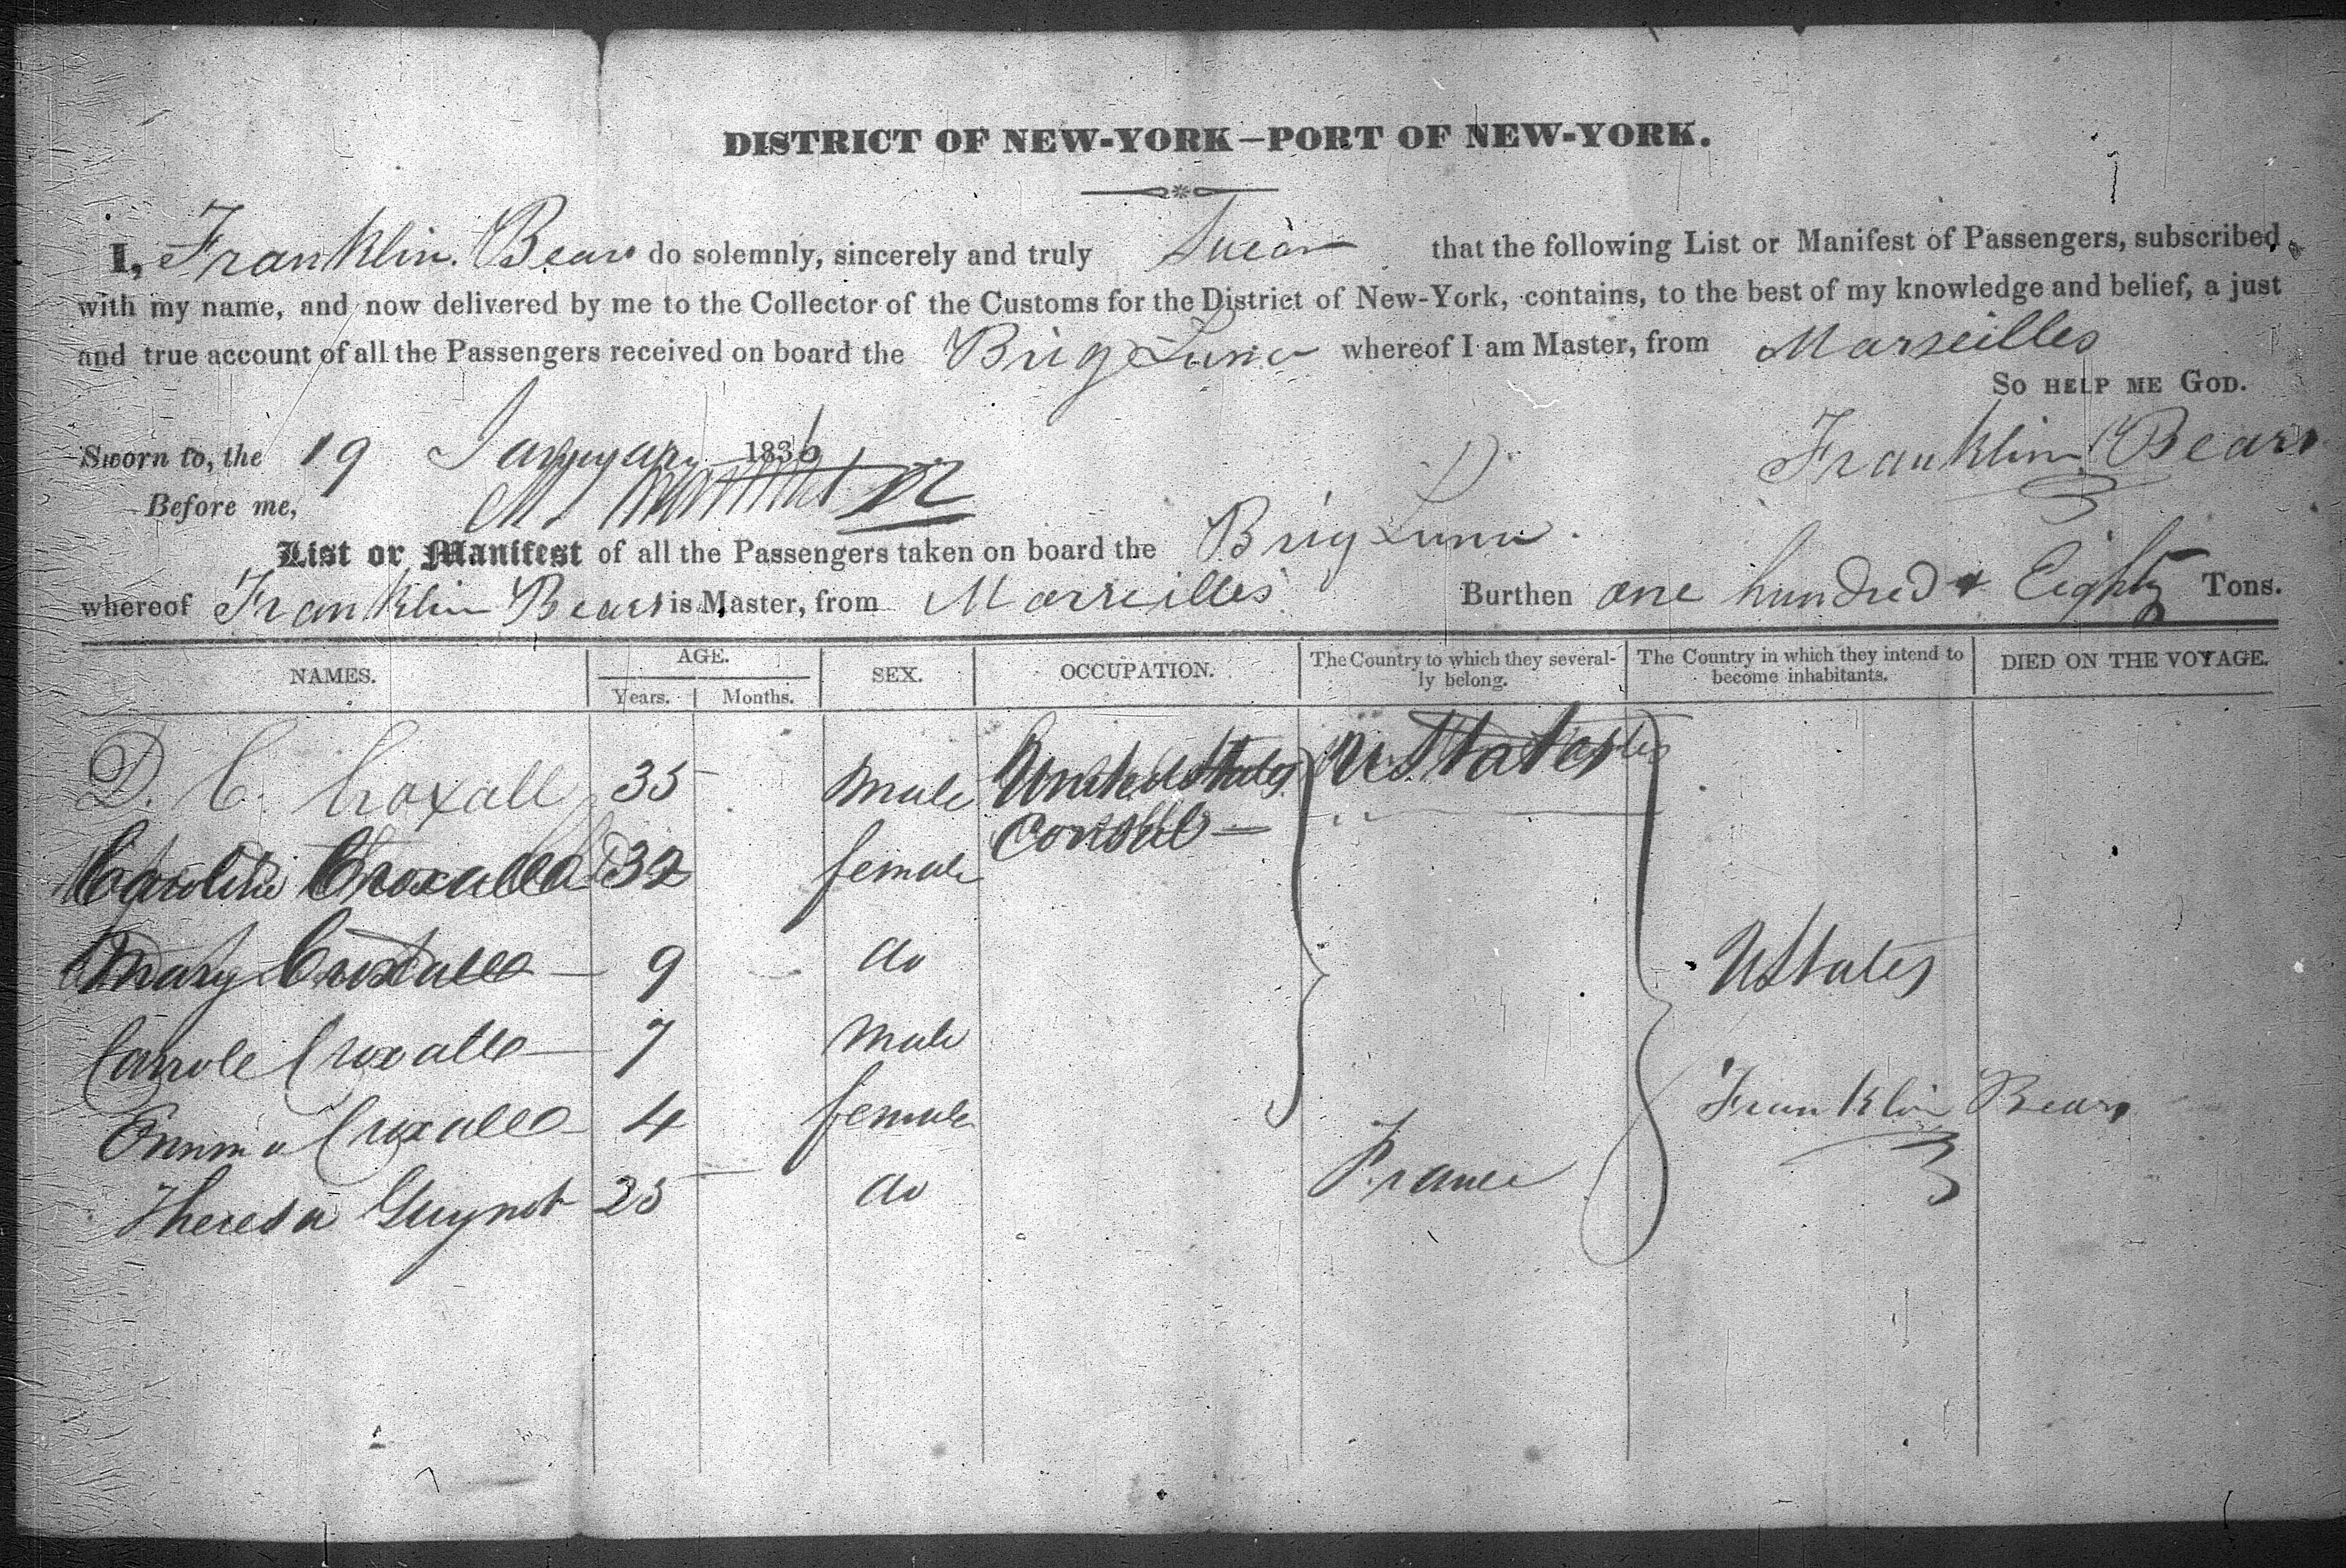 DISTRICT OF NEW-YORK—PORT OF NEW-YORK.
I, Franklin Bears do solemnly, sincerely and truly Swear that the following List or Manifest of Passengers, subscribed
with my name, and now delivered by me to the Collector of the Customs for the District of New-York, contains, to the best of my knowledge and belief, a just
and true account of all the Passengers received on board the Brig Luna whereof I am Master, from Marseilles
SO HELP ME GOD.
Sworn to, the 19 January 1836 Franklin Bears
Before me,
List or Manifest of all the Passengers taken on board the Brig Luna.
whereof Franklin Bears is Master, from Marseilles Burthen one hundred & Eighty Tons.
NAMES. AGE. Years. Months. SEX. OCCUPATION. The Country to which they severally belong. The Country in which they intend to become inhabitants. DIED ON THE VOYAGE.
D. C. Croxall 35 male United States U States
Consul —
Caroline Croxall 32 female
Mary Croxall — 9 do U States
Carrole Croxall — 7 male
Emma Croxall 4 female Franklin Bears
Theresa Guynot 25 do France